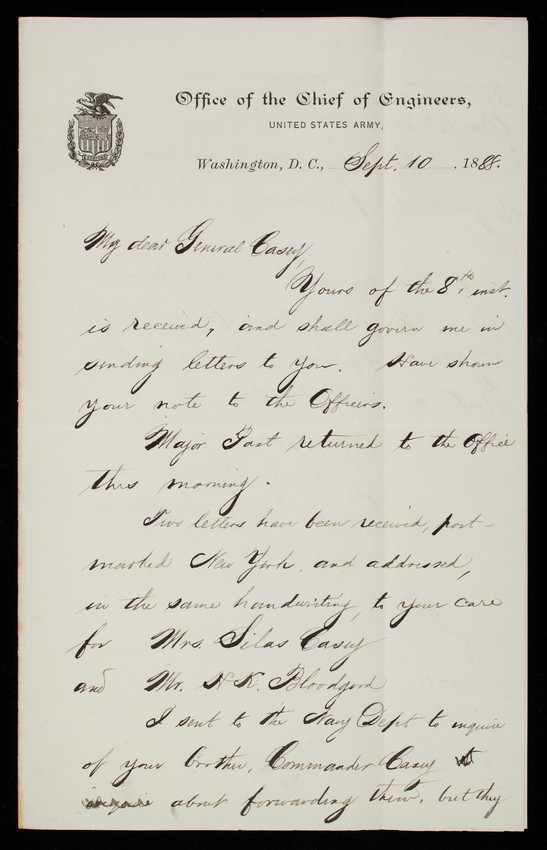 Office of the Chief of Engineers,
UNITED STATES ARMY,
Washington, D. C., Sept. 10, 1888.
My dear General Casey,
Yours of the 8th inst.
is received, and shall govern me in
sending letters to you. Have shown
your note to the Officers.
Major Post returned to the Office
this morning.
Two letters have been received, post-
marked New York, and addressed,
in the same handwriting, to your care
for Mrs. Silas Casey
and Mr. H. K. Bloodgood
I sent to the Navy Dept to inquire
of your brother, Commander Casey
about forwarding them, but they